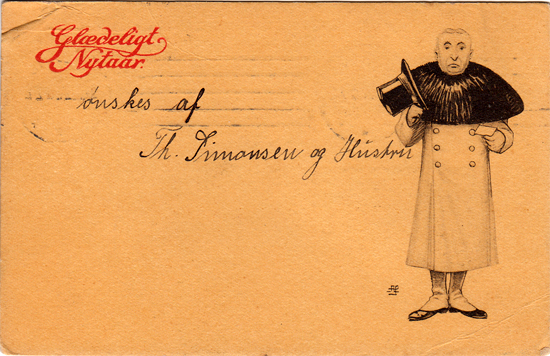 Glædeligt
Nytaar.
ønskes af
Th. Simonsen og Hustru